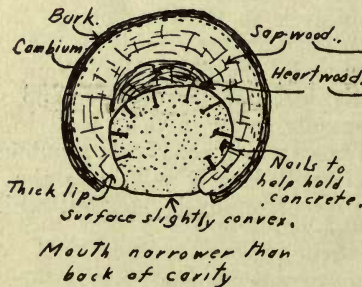 Bark.
Cambium.
Sap-wood.
Heartwood.
Nails to
help hold
concrete.
Thick lip.
Surface slightly convex.
Mouth narrower than
back of cavity